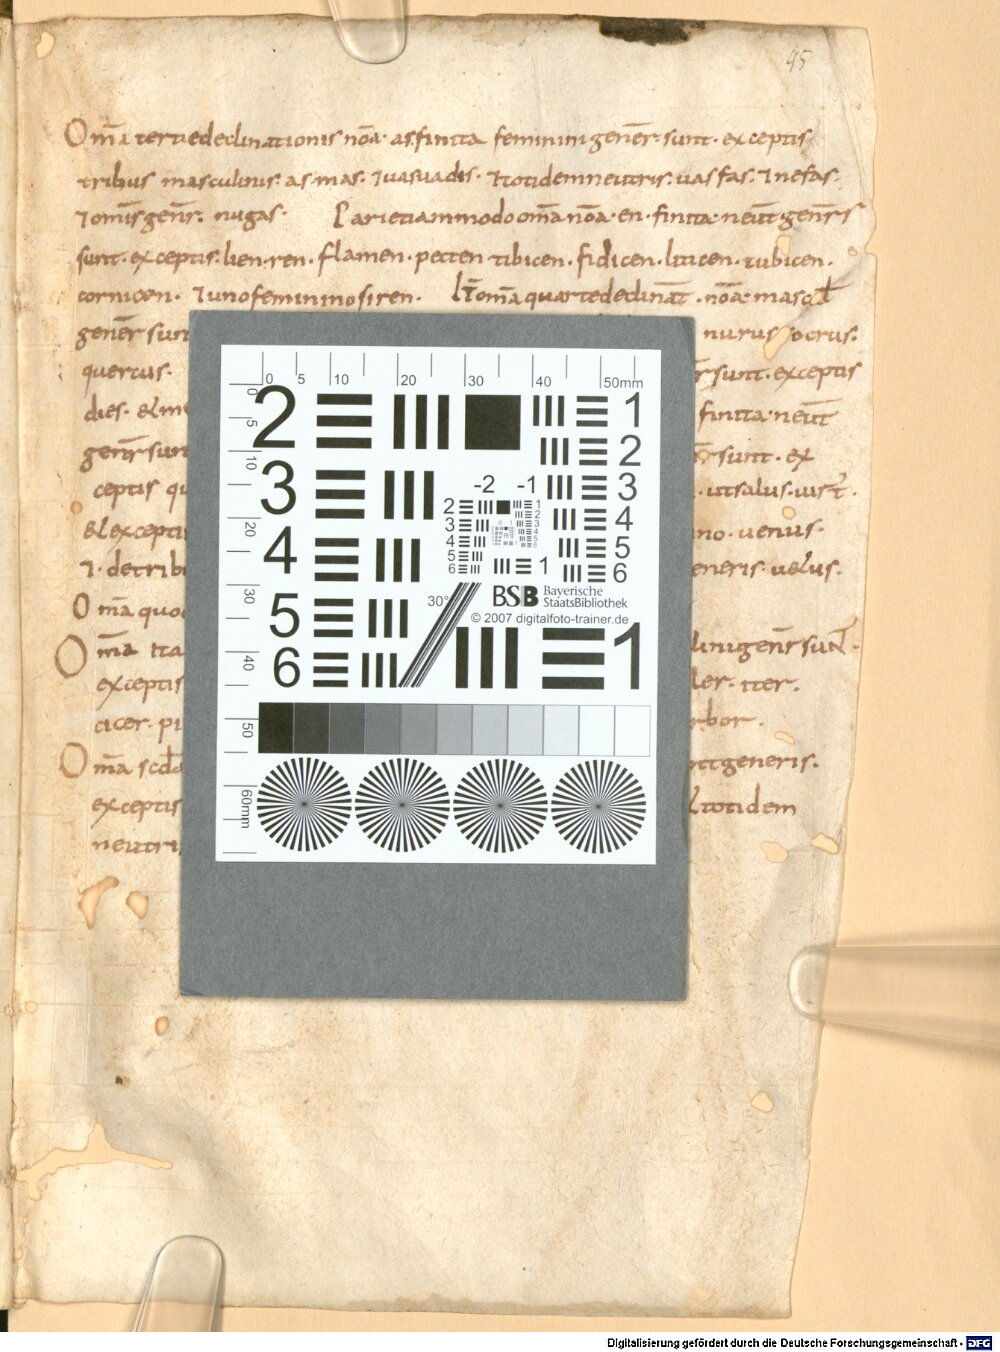 45
Om̄a tertiedeclinationis nōa · asfinita feminini gener̄ · sunt · exceptis
tribus masculinis · as · mas · ⁊uasuadis · ⁊totidemneutris · uas fas · ⁊nefas ·
⁊om̄isgenr̄ · nugas · Parietiammodo om̄a nōa · en · finita · neut̄ gener̄s
sunt · exceptis · lien · ren · flamen · pecten · tibicen · fidicen · liticen · tubicen ·
cornicen · ⁊unofeminino siren · It̄ om̄a quartedeclinat̄ · nōa · mascul̄
gener̄ sunt nurus socrus ·
quercus · sunt · exceptis
dies · finita · neut̄
gener̄ sunt sunt · ex
ceptis utsalus ·
& exceptis no · uenus ·
⁊ · detrib eneris
Om̄a quod
Om̄a ita linigener̄ sunt ·
exceptis iter ·
cicer · pi rbor ·
Om̄a generis ·
exceptis totidem
neutri
0 5 10 20 30 40 50mm
0 5 10 20 30 40 50 60mm
2 1
3 2
4 3
5 4
6 5
6
-2 -1
2 1
3 2
4 3
5 4
6 5
6
1
30°
1
BSB Bayerische
StaatsBibliothek
© 2007 digitalfoto-trainer.de
Digitalisierung gefördert durch die Deutsche Forschungsgemeinschaft - DFG